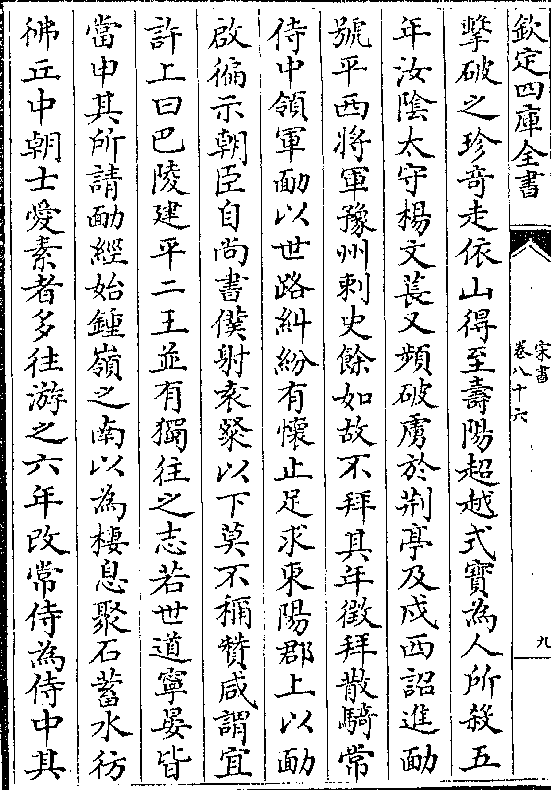 欽定四庫全書
宋書
卷八十六
九
擊破之珍竒走依山得至壽陽超越式寶為人所殺五
年汝隂太守楊文萇又頻破虜於荆亭及戍西詔進勔
號平西將軍豫州刺史餘如故不拜其年徴拜散騎常
侍中領軍勔以世路糾紛有懷止足求東陽郡上以勔
啟徧示朝臣自尚書僕射袁粲以下莫不稱賛咸謂宜
許上曰巴陵建平二王並有獨往之志若世道寧晏皆
當申其所請勔經始鍾嶺之南以為棲息聚石蓄水彷
彿丘中朝士愛素者多往游之六年改常侍為侍中其